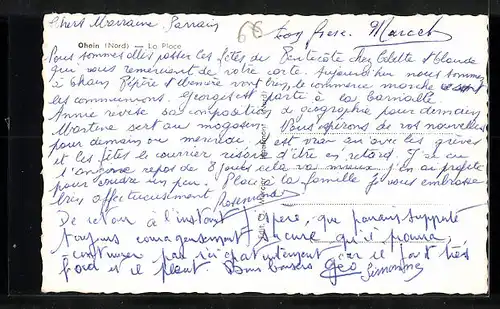 Chers Marraine Parrain
66
Marcel
Ohain (Nord) — La Place
Nous sommes allés passer les fêtes de Pentecôte chez Colette et Claude
qui vous remercient de votre carte. Aujourd'hui nous sommes
à Ohain Pépère et vont bien, le commerce marche ce sont
les communions. Georges est parti à la
Annie révise sa composition de géographie pour demain
Martine sert au magasin Nous espérons de vos nouvelles
pour demain ou mercredi, il est vrai qu'avec les grèves
et les fêtes le courrier risque d'être en retard. J'ai eu
l'angine repos de 8 jours cela va mieux, j'en ai profité
pour coudre un peu. Place à la famille je vous embrasse
très affectueusement
De retour à l'instant j'espère, que parrain supporte
toujours courageusement sa cure qu'il pourra
continuer par ici car il fait très
froid et il pleut Bons baisers Géo Simonne